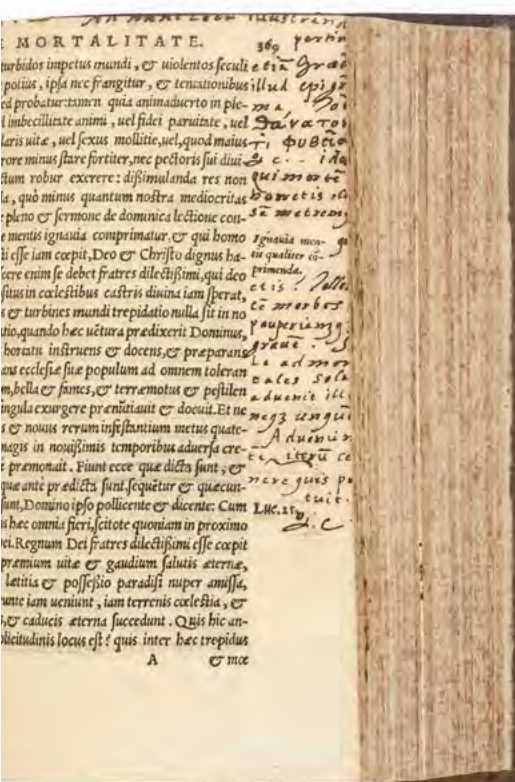 MORTALITATE.
369
turbidos impetus mundi, & uiolentos seculi
potius, ipsa nec frangitur, & tentationibus
ed probatur: tamen quia animaduerto in ple-
l imbecillitate animi, uel fidei paruitate, uel
laris uitæ, uel sexus mollitie, uel, quod maius
rore minus stare fortiter, nec pectoris sui diui-
ctum robur exerere: dissimulanda res non
la, quò minus quantum nostra mediocritas
pleno & sermone de dominica lectione con-
e mentis ignauia comprimatur, & qui homo
ii esse iam cœpit, Deo & Christo dignus ha-
cere enim se debet fratres dilectissimi, qui deo
situs in cœlestibus castris diuina iam sperat,
s & turbines mundi trepidatio nulla sit in no
tio, quando hæc uētura prædixerit Dominus,
hortatu instruens & docens, & præparans
ans ecclesiæ suæ populum ad omnem toleran
m, bella & fames, & terræmotus & pestilen
ingula exurgere prænūtiauit & docuit. Et ne
s & nouus rerum infestantium metus quate-
magis in nouissimis temporibus aduersa cre-
t præmonait. Fiunt ecce quæ dicta sunt, &
quæ ante prædicta sunt, sequētur & quæcun-
sunt, Domino ipso pollicente & dicente: Cum
is hæc omnia fieri, scitote quoniam in proximo
ei. Regnum Dei fratres dilectissimi esse cœpit
præmium uitæ & gaudium salutis æternæ,
lætitia & possessio paradisi nuper amissa,
unte iam ueniunt, iam terrenis cœlestia, &
s, & caducis æterna succedunt. Quis hic an-
licitudinis locus est? quis inter hæc trepidus
A & mœ
illud epi
θάνατος
qui mortē
Ignauia men-
tis qualiter cō-
primenda.
tē morbos
graue
le ad mor
tales sola
aduenit illi
neqz
iterū
nere quis
tuit.
LUC. 21